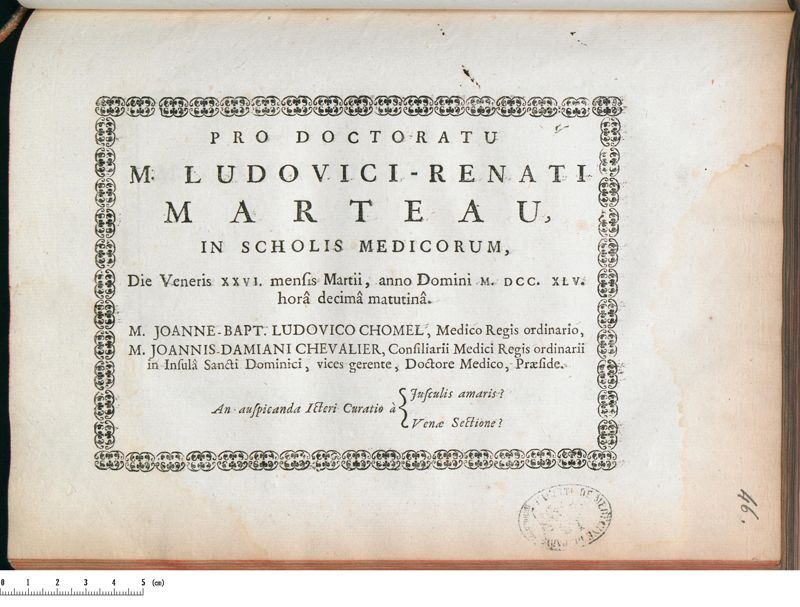 PRO DOCTORATU
M. LUDOVICI-RENATI
MARTEAU,
IN SCHOLIS MEDICORUM,
Die Veneris XXVI. mensis Martii, anno Domini M. DCC. XLV.
horâ decimâ matutinâ.
M. JOANNE-BAPT. LUDOVICO CHOMEL, Medico Regis ordinario,
M. JOANNIS-DAMIANI CHEVALIER, Consiliarii Medici Regis ordinarii
in Insulâ Sancti Dominici, vices gerente, Doctore Medico, Præside.
An auspicanda Icteri Curatio à { Jusculis amaris?
Venæ Sectione?
DE MEDECINE
46.
0 1 2 3 4 5 (cm)